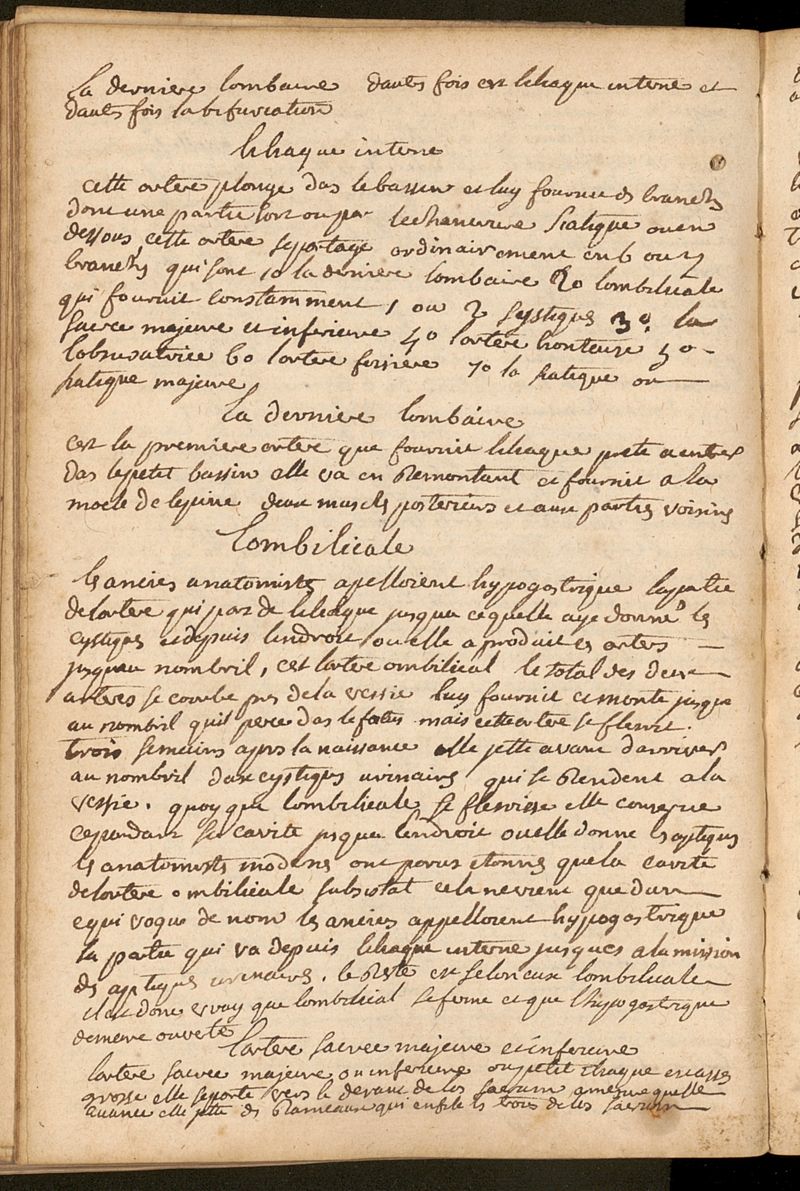 la derniere lombaire dautes fois est liliaque interne et
dautes fois la bifurcation
liliaque interne
cette artere plonge das le bassin et luy fournit ds branchs
dont une partie sort ou par lechancrure siatique ou en
dessous, cette artere separtage ordinairement en 6 ou 7
branchs qui sont 1o la derniere lombaire 2o lombilicale
qui fournit constamment 1 ou 2 systiques 3o la
sacree majeure et inferieure 4o lartere honteuse 5o
lobturatrice 6o lartere fessiere 7o la siatique ou
siatique majeure
la derniere lombaire
cest la premiere artere que fournit liliaque prete a entrer
das le petit bassin elle va en Remontant et fournit a la
moele de lepine deux muscls posterieurs et aux parties voisins
Lombilicale
ls anciens anatomists apelloient hypogastrique la partie
de lartere qui part de liliaque jusqua cequelle aye donné ls
cystiques et depuis lendroit ou elle a produit ls arters
jusquau nombril, cest lartere ombilical le total des deux
arteres se courbe prs de la vessie luy fournit et monte jusque
au nombril quil perce das le fœtus mais cette artere se fletrit
trois semaines aprs la naissance elle jette avant darriver
au nombril deux cystiques urinairs qui se Rendent a la
vessie. quoyque lombilicale se fletrisse elle conserve
cependant sa cavite jsqua lendroit ou elle donne ls cystiques
ls anatomists moderns ont parus etonnes que la cavité
de lartere ombilicale subsistat cela ne vient que dun
equivoque de nom ls anciens appelloient hypogastrique
la partie qui va depuis liliaque interne jusques a lemission
ds cystiques urinaires. le Reste est selon eux lombilicale
il est donc vray que lombilical se ferme et que lhypogastrique
demeure ouverte
lartere sacree majeure et inferieure
lartere sacree majeure ou inferieure ou petit iliaque est asses
grosse elle se porte vers le devant de los sacrum a mesure quelle
avance elle jette ds Rameaux qui enfile ls trous de los sacrum